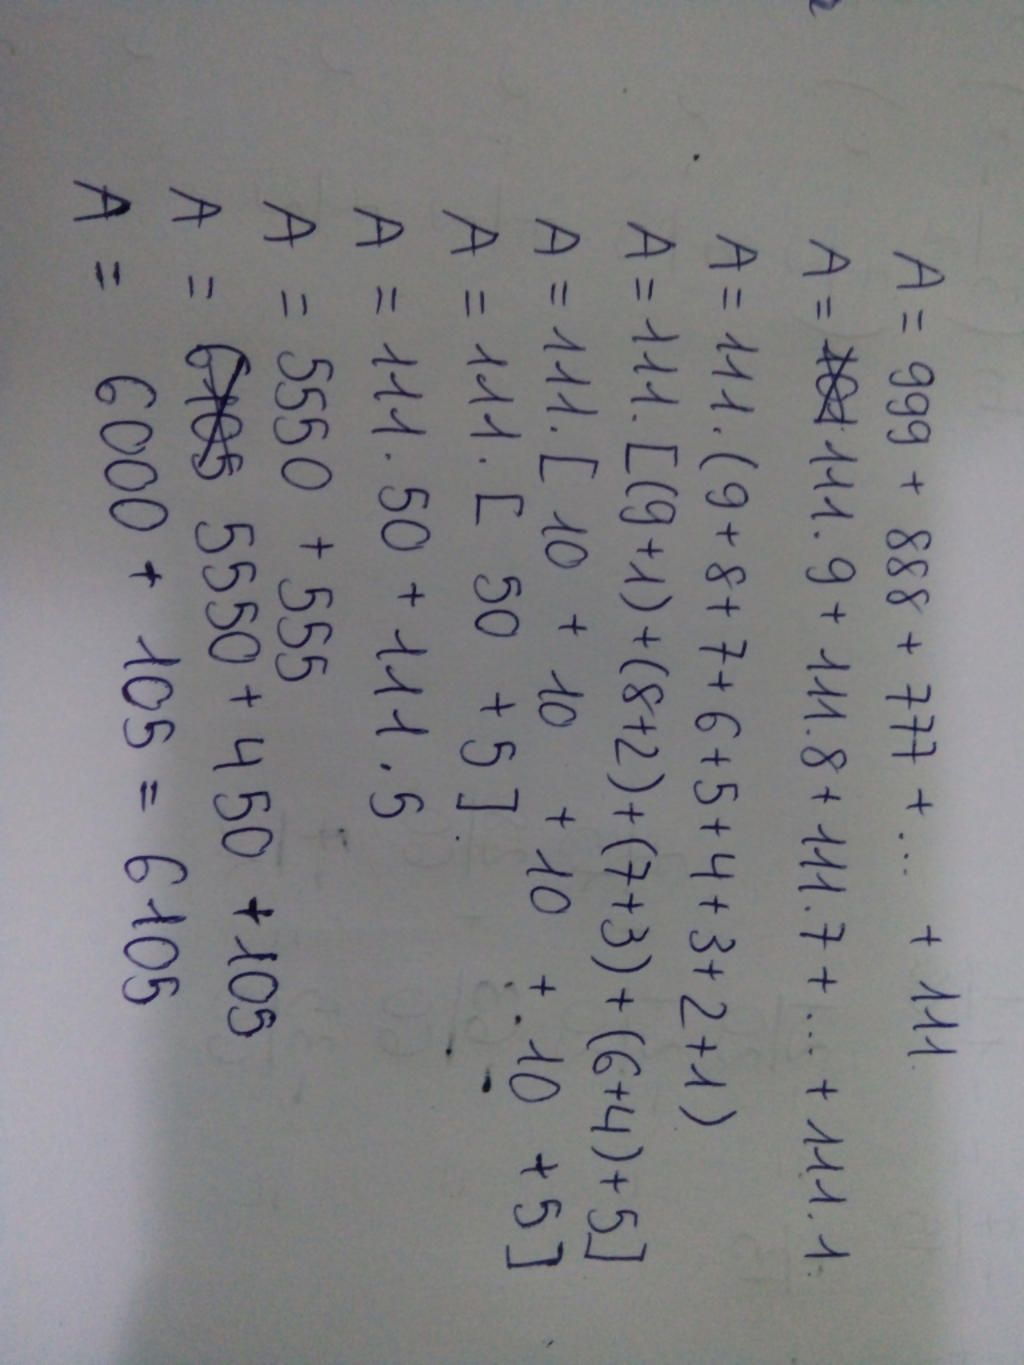 A = 999 + 888 + 777 + ... + 111
A = 111.9 + 111.8 + 111.7 + ... + 111.1.
A = 111.(9+8+7+6+5+4+3+2+1)
A = 111.[(9+1)+(8+2)+(7+3)+(6+4)+5]
A = 111.[10 + 10 + 10 + 10 + 5]
A = 111.[50 + 5]
A = 111.50 + 111.5
A = 5550 + 555
A = 6105 5550 + 450 + 105
A = 6000 + 105 = 6105